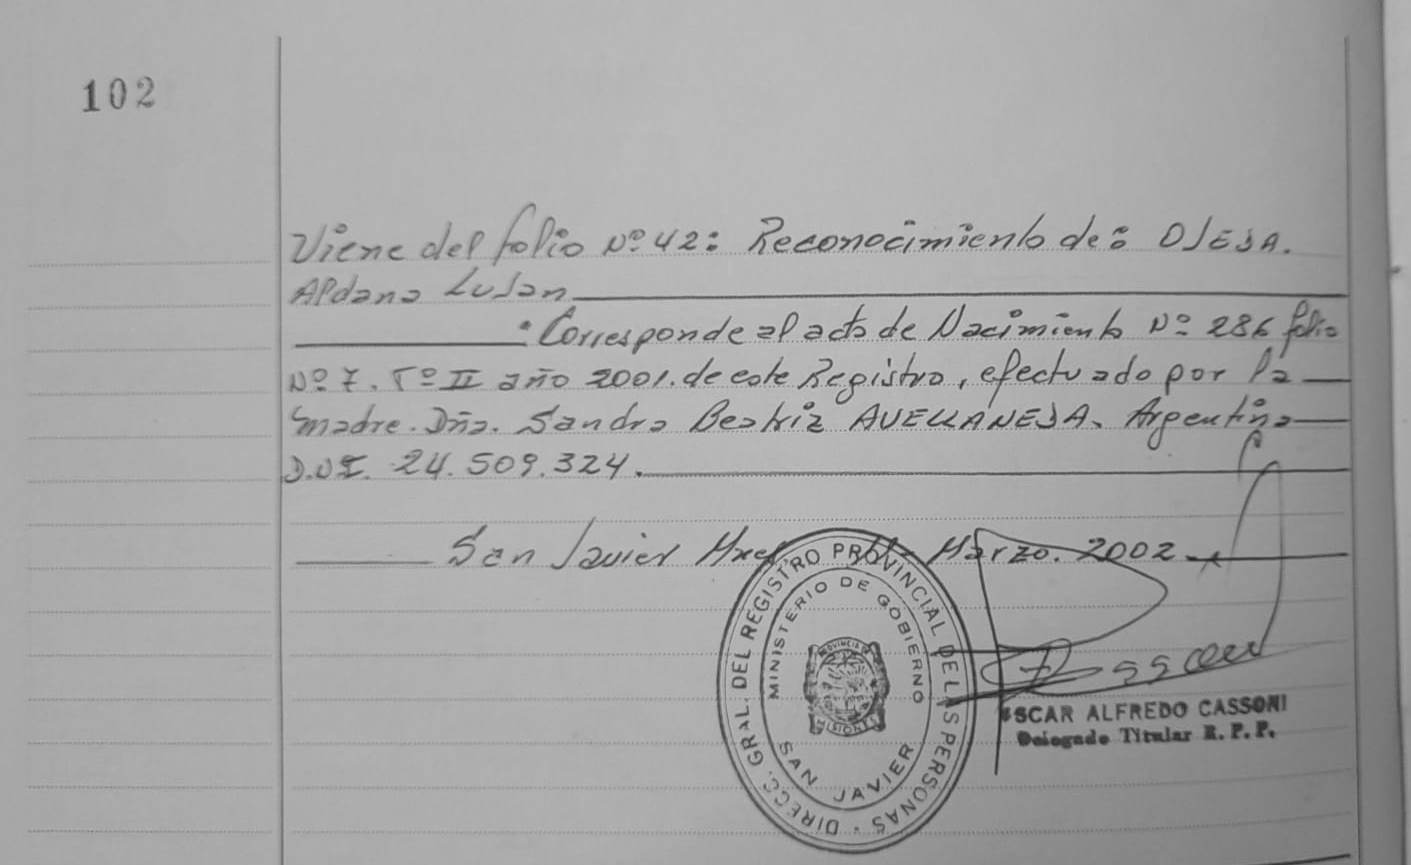 102
Viene del folio Nº 42: Reconocimiento de: OJEDA.
Aldana Lujan
· Corresponde al acta de Nacimiento Nº 286 folio
Nº 7. Tº II año 2001. de este Registro, efectuado por la
madre. Dña. Sandra Beatriz AVELLANEDA. Argentina
D.N.I. 24.509.324.
San Javier Marzo. 2002
DIRECC. GRAL. DEL REGISTRO PROVINCIAL DE LAS PERSONAS
MINISTERIO DE GOBIERNO
PROVINCIA DE
MISIONES
SAN JAVIER
OSCAR ALFREDO CASSONI
Delegado Titular R. P. P.